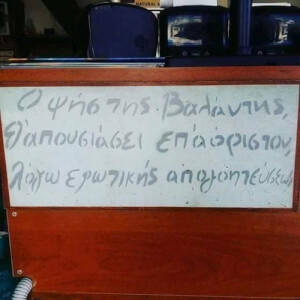 Ο ψήστης Βαλάντης,
θ' απουσιάσει επ' αόριστον,
λόγω ερωτικής απογοητεύσεως